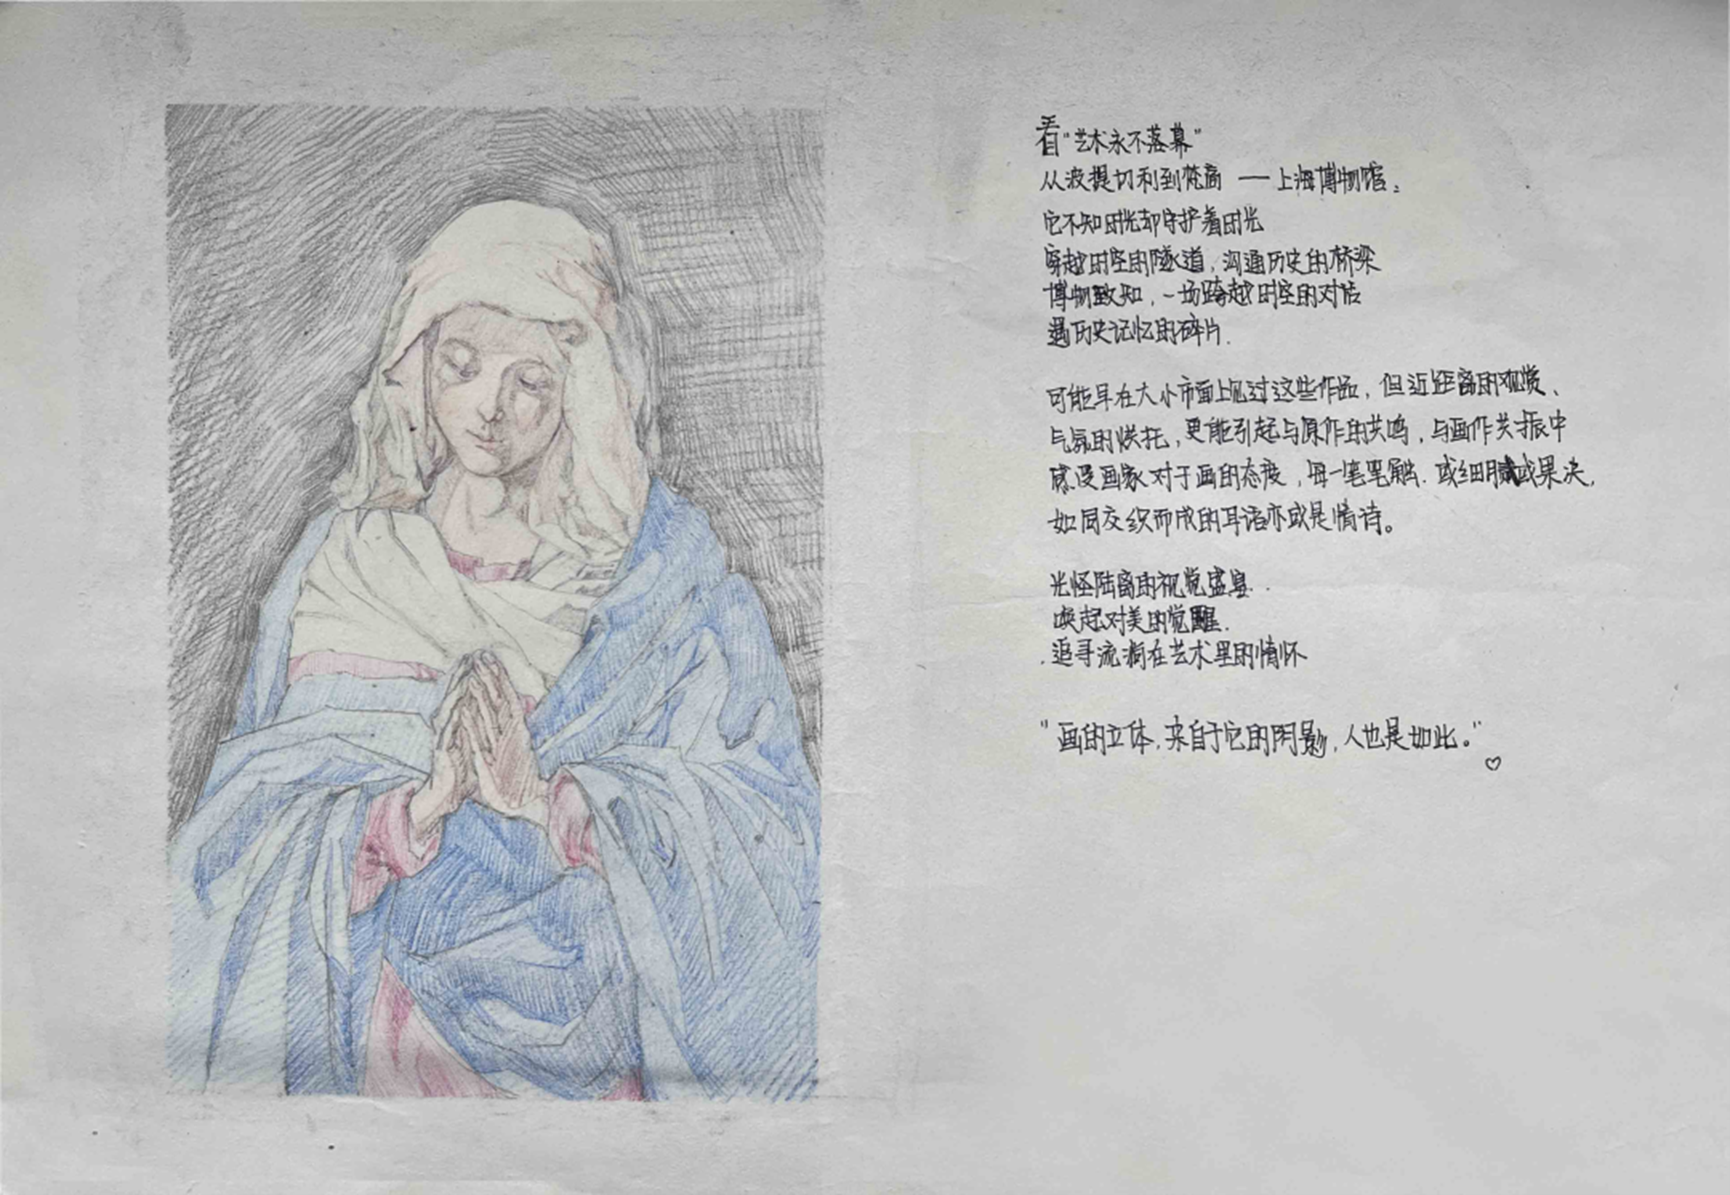 看“艺术永不落幕”
从波提切利到梵高 — 上海博物馆。
它不知时光却守护着时光
穿越时空的隧道,沟通历史的桥梁
博物致知,一场跨越时空的对话
遇历史记忆的碎片.
可能早在大小市面上见过这些作品,但近距离的观赏、
气氛的烘托,更能引起与原作的共鸣,与画作共振中
感受画家对于画的态度,每一笔笔触.或细腻或果决,
如同交织而成的耳语亦或是情诗。
光怪陆离的视觉盛宴..
唤起对美的觉醒.
.追寻流淌在艺术里的情怀
“画的立体,来自于它的阴影,人也是如此。”